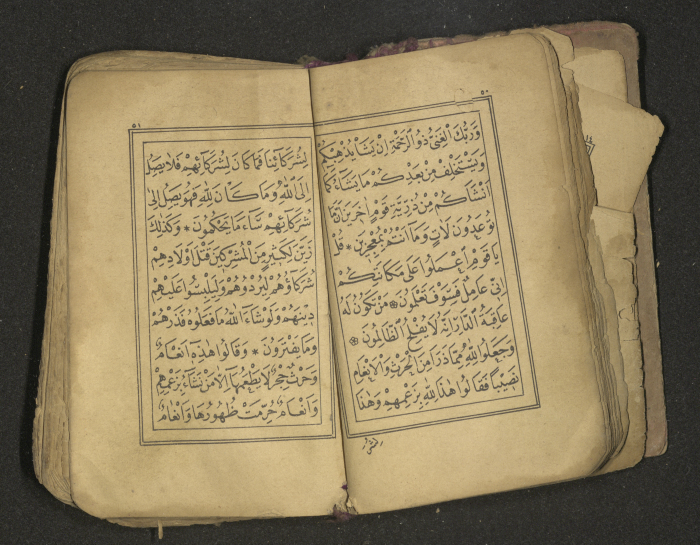 ٥٠
وَرَبُّكَ الْغَنِىُّ ذُو الرَّحْمَةِ اِنْ يَشَأْ يُذْهِبْكُمْ
وَيَسْتَخْلِفْ مِنْ بَعْدِكُمْ مَا يَشَاءُ كَمَا
اَنْشَاَكُمْ مِنْ ذُرِّيَّةِ قَوْمٍ اٰخَرِينَ اِنَّ مَا
تُوعَدُونَ لَاٰتٍ وَمَا اَنْتُمْ بِمُعْجِزِينَ * قُلْ
يَا قَوْمِ اعْمَلُوا عَلٰى مَكَانَتِكُمْ
اِنِّى عَامِلٌ فَسَوْفَ تَعْلَمُونَ * مَنْ تَكُونُ لَهُ
عَاقِبَةُ الدَّارِ اِنَّهُ لَا يُفْلِحُ الظَّالِمُونَ *
وَجَعَلُوا لِلّٰهِ مِمَّا ذَرَاَ مِنَ الْحَرْثِ وَالْاَنْعَامِ
نَصِيبًا فَقَالُوا هٰذَا لِلّٰهِ بِزَعْمِهِمْ وَهٰذَا
٥١
لِشُرَكَائِنَا فَمَا كَانَ لِشُرَكَائِهِمْ فَلَا يَصِلُ
اِلَى اللّٰهِ وَمَا كَانَ لِلّٰهِ فَهُوَ يَصِلُ اِلٰى
شُرَكَائِهِمْ سَاءَ مَا يَحْكُمُونَ * وَكَذٰلِكَ
زَيَّنَ لِكَثِيرٍ مِنَ الْمُشْرِكِينَ قَتْلَ اَوْلَادِهِمْ
شُرَكَاؤُهُمْ لِيُرْدُوهُمْ وَلِيَلْبِسُوا عَلَيْهِمْ
دِينَهُمْ وَلَوْ شَاءَ اللّٰهُ مَا فَعَلُوهُ فَذَرْهُمْ
وَمَا يَفْتَرُونَ * وَقَالُوا هٰذِهِ اَنْعَامٌ
وَحَرْثٌ حِجْرٌ لَا يَطْعَمُهَا اِلَّا مَنْ نَشَاءُ بِزَعْمِهِمْ
وَاَنْعَامٌ حُرِّمَتْ ظُهُورُهَا وَاَنْعَامٌ